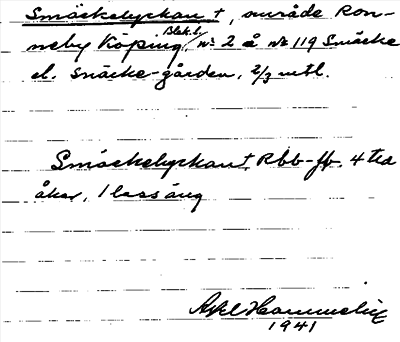 Smäckelyckan †, område Ron-
neby Köping, Blek. l. nr 2 å nr 119 Smäcke
el. Snäcke-gården, 2/3 mtl.
Smäckelyckan † Rbb-jb. 4 tld
åker, 1 lass äng
Axel
1941